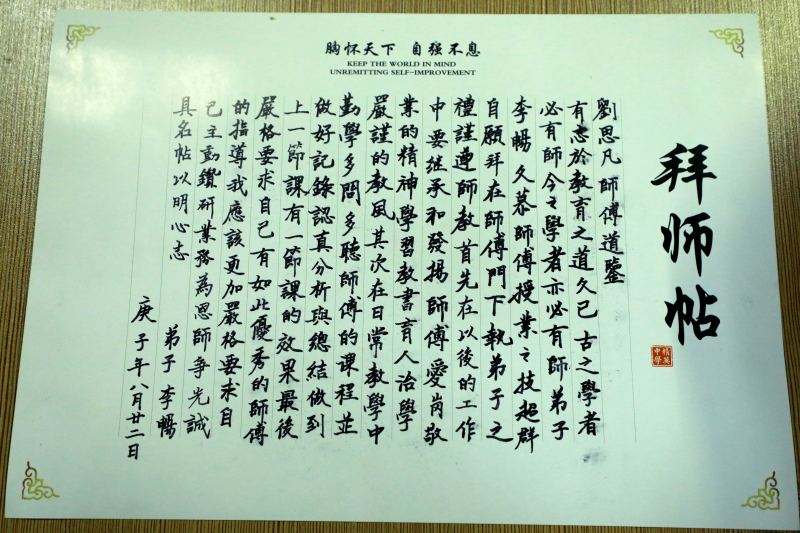 胸怀天下 自强不息
KEEP THE WORLD IN MIND
UNREMITTING SELF-IMPROVEMENT
拜师帖
精英中學
劉思凡師傅道鑒
有志於教育之道久已古之學者
必有師今之學者亦必有師弟子
李暢久慕師傅授業之技超群
自願拜在師傅門下執弟子之
禮謹遵師教首先在以後的工作
中要继承和發揚師傅愛岗敬
業的精神學習教書育人治學
嚴謹的教風其次在日常教學中
勤學多問多聽師傅的课程並
做好記錄認真分析與總結做到
上一節課有一節課的效果最後
嚴格要求自己有如此優秀的師傅
的指導我應該更加嚴格要求自
己主動鑽研業務為恩師争光誠
具名帖以明心志
弟子李暢
庚子年八月廿二日